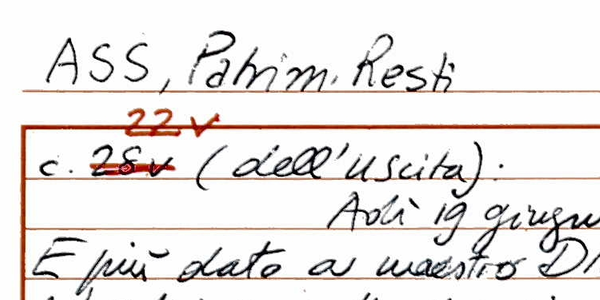 ASS, Patrim. Resti
22 v
c. 28v (dell'uscita):
Adì 19 giugn
E più dato a maestro